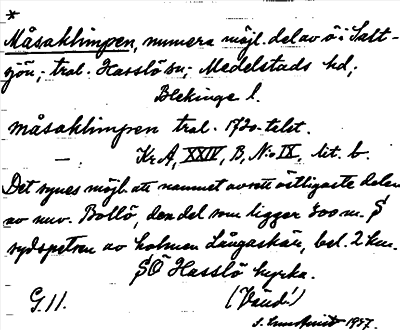 *
Måsaklimpen, numera möjl. del av ö i Salt-
sjön, tral. Hasslö sn, Medelstads hd,
Blekinge l.
måsaklimpen tral. 1720-talet.
— KrA, XXIV, B, No IX, lit. b.
Det synes möjl. att namnet avsett östligaste delen
av nuv. Bollö, den del som ligger 400 m. S
sydspetsen av holmen Långaskär, bel. 2 km.
SO Hasslö kyrka.
G. 11. (Vänd!)
1957.